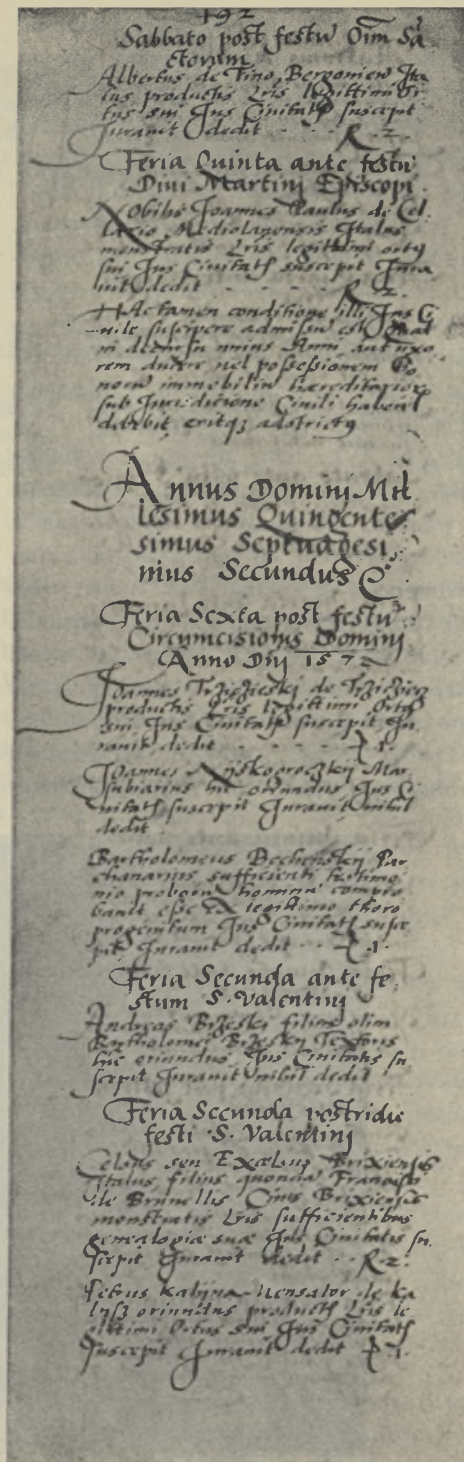 192
Sabbato post festū Oīm Sā
ctorum
Albertus de Fino Bergomien Ita
lus productis Lris legittimi Or
tus sui Jus Ciuitatis suscepit
Jurauit dedit - - - R. 2.
Feria Quinta ante festū
Diui Martini Episcopi
Nobilis Joannes Paulus de Cel
lario Mediolanensis Italus
monstratis Lris legittimi ortus
sui Jus Ciuitatis suscepit Jura
uit dedit - - - R. 2.
Hac tamen conditione illi Jus Ci
uile suscipere admissū est
ni decursu unius Anni aut uxo
rem ducere uel possessionem Bo
norū immobiliū haereditariorū
sub Jurisdictione Ciuili habere
debebit eritqz adstrictus
Annus Domini Mil
lesimus Quingente
simus Septuagesi
mus Secundus
Feria Sexta post festū
Circumcisionis Domini
Anno Dni 1572
Joannes Trzicieski de Trzicież
productis Lris legittimi Ortus
sui Jus Ciuitatis suscepit Ju
rauit dedit - - - R. 1.
Joannes Mar
supiarius hic oriundus Jus Ci
uitatis suscepit Jurauit nihil
dedit
Bartholomeus Bechenskij Par
chanarius sufficienti testimo
nio proborū hominū compro
bauit esse legittimo thoro
progenitum Jus Ciuitatis susce
pit Jurauit dedit - - R. 1.
Feria Secunda ante fe
stum S. Valentini
Andreas Brzeskij filius olim
Bartholomei Brzeskij Textoris
hic oriundus Jus Ciuitatis su
scepit Jurauit nihil dedit
Feria Secunda postridie
festi S. Valentinij
Celsus seu Brixiensis
Italus filius quondā Francisci
de Brunellis Ciuis Brixiensis
monstratis Lris sufficientibus
genealogiae suae Jus Ciuitatis su
scepit Jurauit dedit - - R. 2.
Petrus Kalijna Mensator de Ka
lijsz oriundus productis Lris le
gittimi Ortus sui Jus Ciuitatis
suscepit Jurauit dedit R. 1.